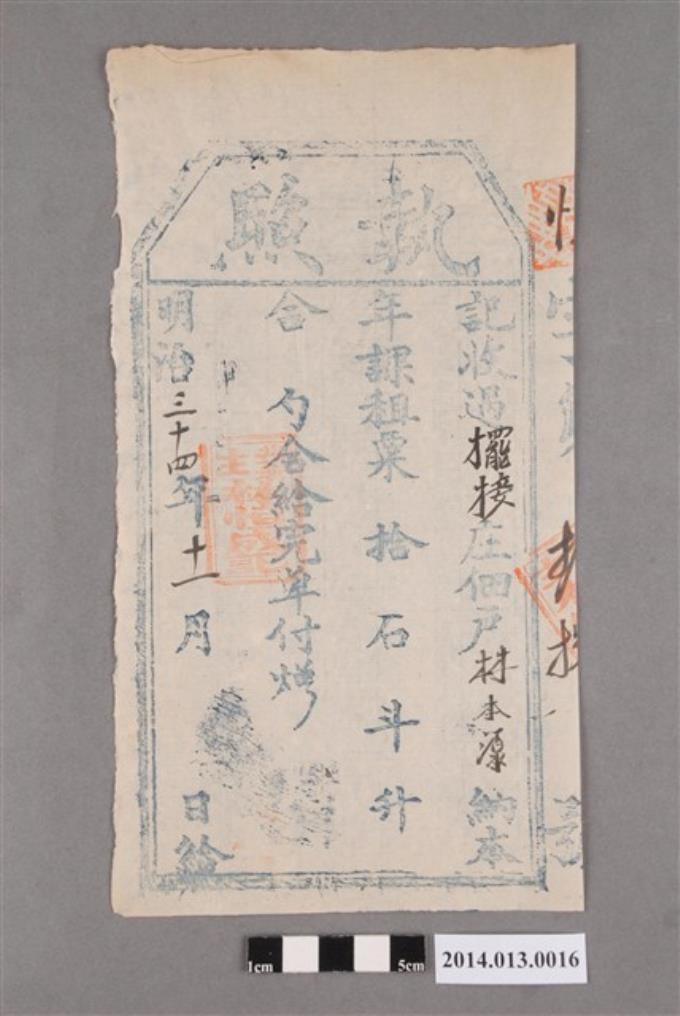 執照
記收過擺接庄佃戶林本源納本
年課租粟拾石斗升
合勺合給完单付炤
明治三十四年十一月日給
1cm 5cm
2014.013.0016